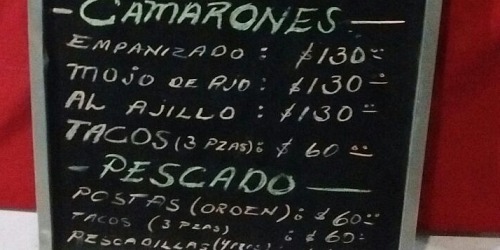 - CAMARONES -
EMPANIZADO : $130
MOJO DE AJO : $130
AL AJILLO : $130
TACOS (3 PZAS): $ 60
- PESCADO -
POSTAS (ORDEN): $ 60
TACOS (3 PZAS)
PESCADILLAS : $ 60